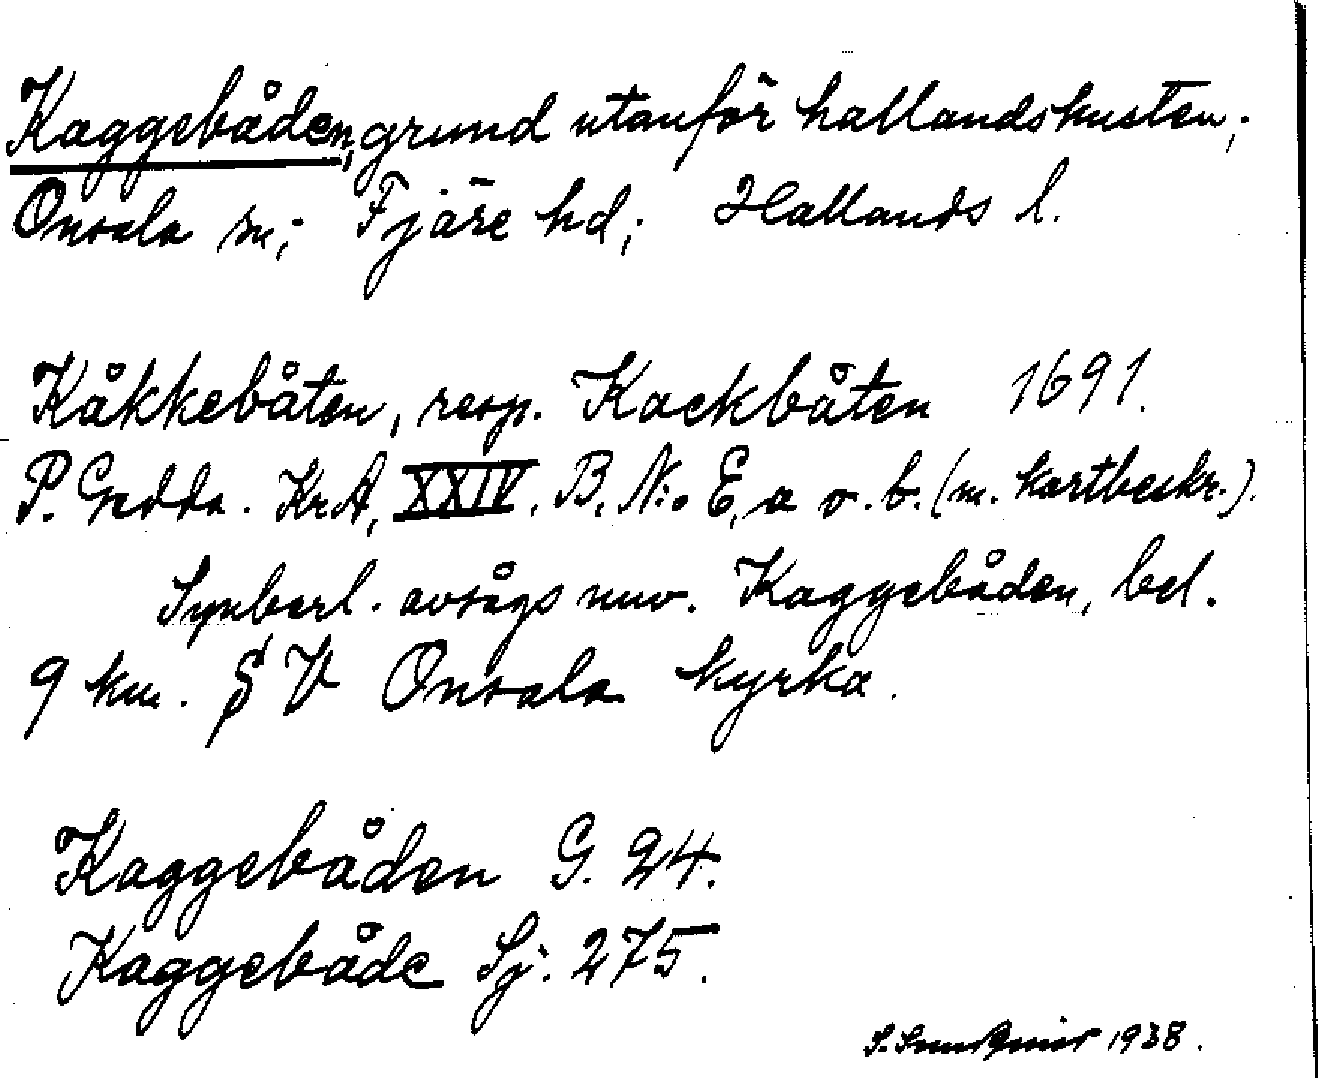 Kaggebåden, grund utanför hallandskusten;
Onsala sn; Fjäre hd; Hallands l.
Kåkkebåten, resp. Kackbåten 1691.
P. Gedda. KrA, XXIV. B. N:o E, a o. b. (m. kartbeskr.).
Synberl. avsågs nuv. Kaggebåden, bel.
9 km. V Onsala kyrka.
Kaggebåden G. 24.
Kaggebåde Sj. 275.
S. 1938.